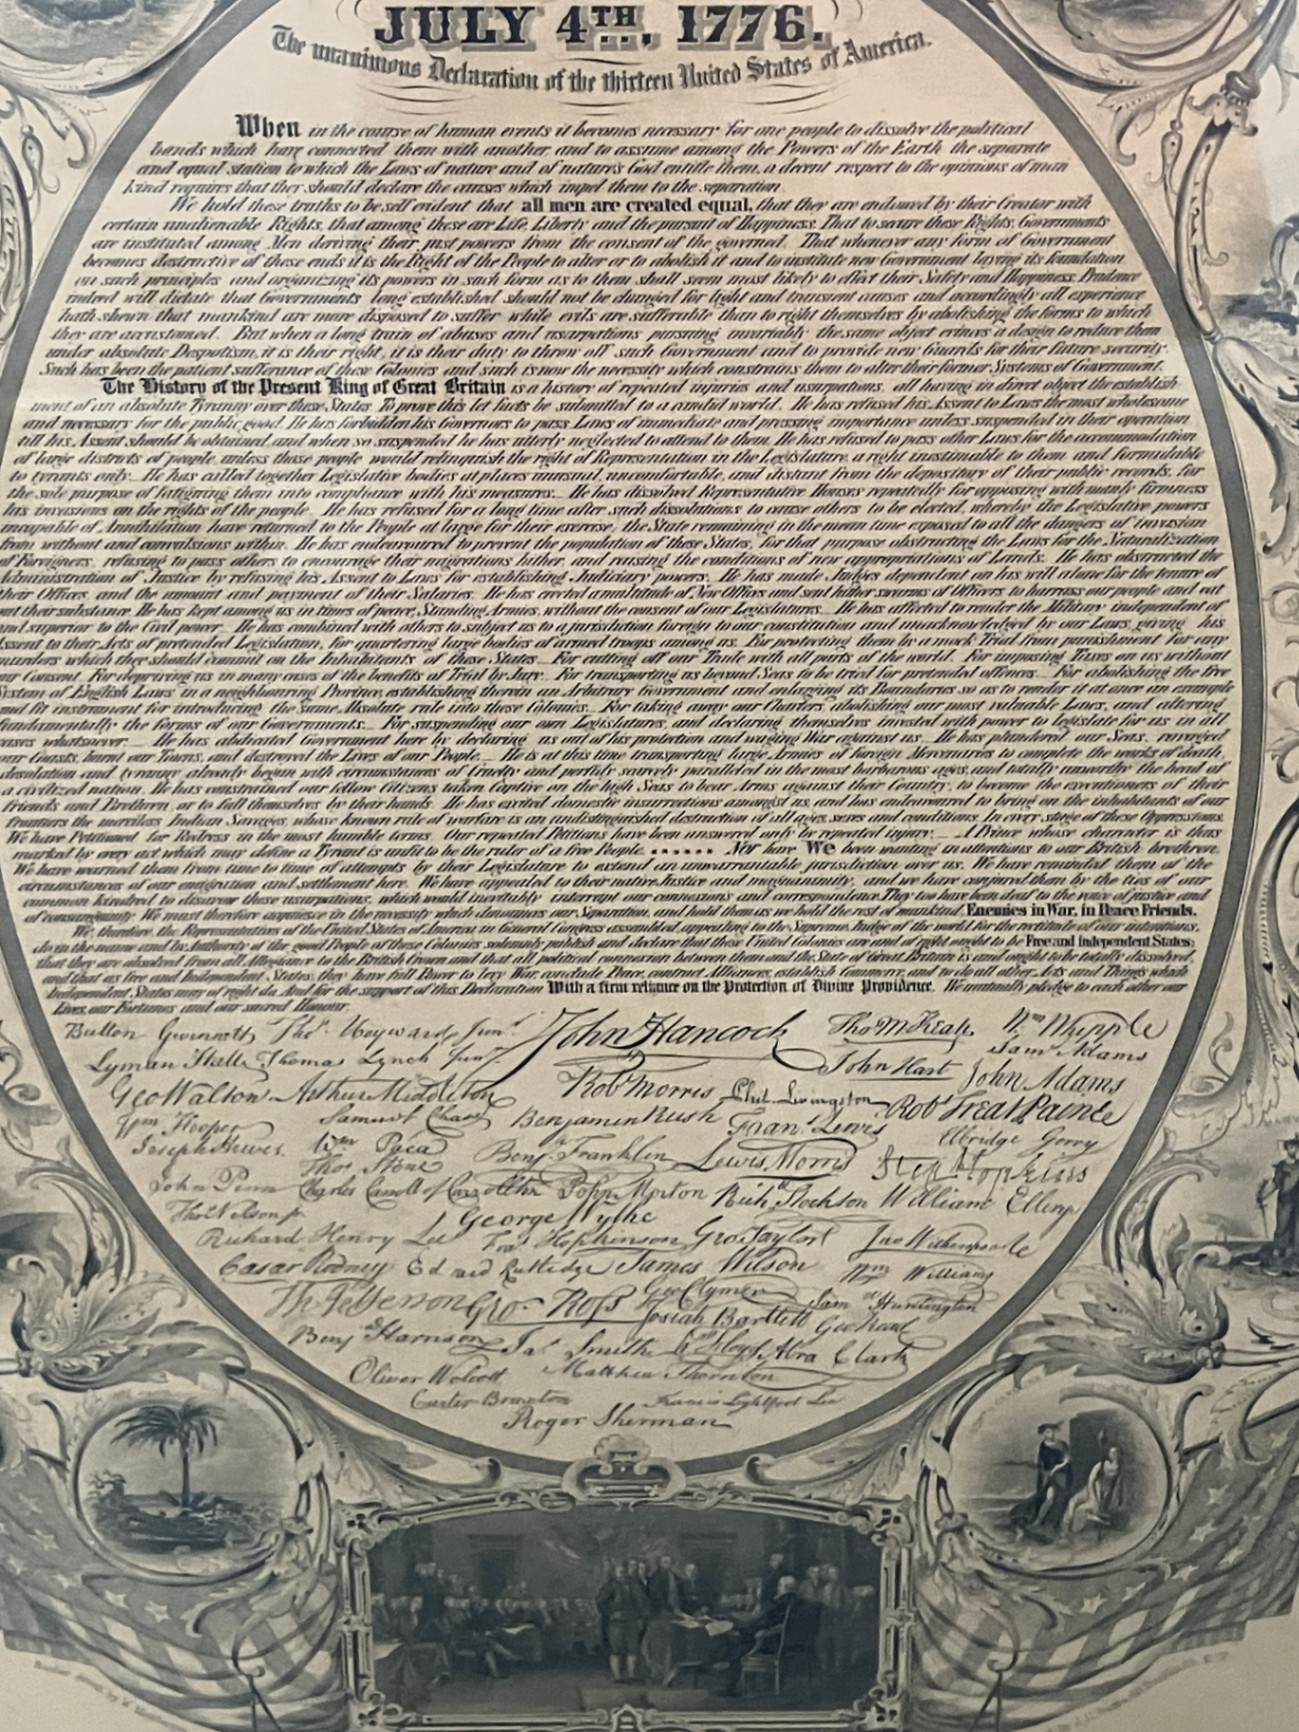 JULY 4TH, 1776.
The unanimous Declaration of the thirteen United States of America.
When in the course of human events it becomes necessary for one people to dissolve the political
bands which have connected them with another and to assume among the Powers of the Earth the separate
and equal station to which the Laws of nature and of nature's God entitle them, a decent respect to the opinions of man
kind requires that they should declare the causes which impel them to the separation.
We hold these truths to be self evident that all men are created equal, that they are endowed by their Creator with
certain unalienable Rights, that among these are Life, Liberty and the pursuit of Happiness. That to secure these Rights, Governments
are instituted among Men deriving their just powers from the consent of the governed. That whenever any form of Government
becomes destructive of these ends it is the Right of the People to alter or to abolish it and to institute new Government laying its foundation
on such principles and organizing its powers in such form as to them shall seem most likely to effect their Safety and Happiness. Prudence
indeed will dictate that Governments long established should not be changed for light and transient causes and accordingly all experience
hath shewn that mankind are more disposed to suffer while evils are sufferable than to right themselves by abolishing the forms to which
they are accustomed. But when a long train of abuses and usurpations pursuing invariably the same object evinces a design to reduce them
under absolute Despotism, it is their right, it is their duty to throw off such Government and to provide new Guards for their future security.
Such has been the patient sufferance of these Colonies and such is now the necessity which constrains them to alter their former Systems of Government.
The History of the Present King of Great Britain is a history of repeated injuries and usurpations, all having in direct object the establish
ment of an absolute Tyranny over these States To prove this let facts be submitted to a candid world. He has refused his Assent to Laws the most wholesome
and necessary for the public good. He has forbidden his Governors to pass Laws of immediate and pressing importance unless suspended in their operation
till his Assent should be obtained, and when so suspended he has utterly neglected to attend to them. He has refused to pass other Laws for the accommodation
of large districts of people, unless those people would relinquish the right of Representation in the Legislature a right inestimable to them and formidable
to tyrants only. He has called together Legislative bodies at places unusual, uncomfortable, and distant from the depository of their public records, for
the sole purpose of fatiguing them into compliance with his measures. He has dissolved Representative Houses repeatedly for opposing with manly firmness
his invasions on the rights of the people. He has refused for a long time after such dissolutions to cause others to be elected, whereby the Legislative powers
incapable of Annihilation have returned to the People at large for their exercise, the State remaining in the mean time exposed to all the dangers of invasion
from without and convulsions within. He has endeavoured to prevent the population of these States, for that purpose obstructing the Laws for the Naturalization
of Foreigners, refusing to pass others to encourage their migrations hither, and raising the conditions of new appropriations of Lands. He has obstructed the
Administration of Justice by refusing his Assent to Laws for establishing Judiciary powers. He has made Judges dependent on his will alone for the tenure of
their Offices and the amount and payment of their Salaries. He has erected a multitude of New Offices and sent hither swarms of Officers to harrass our people and eat
out their substance. He has kept among us in times of peace, Standing Armies, without the consent of our Legislatures. He has affected to render the Military independent of
and superior to the Civil power. He has combined with others to subject us to a jurisdiction foreign to our constitution and unacknowledged by our Laws, giving his
Assent to their Acts of pretended Legislation, for quartering large bodies of armed troops among us. For protecting them by a mock Trial from punishment for any
murders which they should commit on the Inhabitants of these States. For cutting off our Trade with all parts of the world. For imposing Taxes on us without
our Consent. For depriving us in many cases of the benefits of Trial by Jury. For transporting us beyond Seas to be tried for pretended offences. For abolishing the free
System of English Laws in a neighbouring Province, establishing therein an Arbitrary Government and enlarging its Boundaries so as to render it at once an example
and fit instrument for introducing the same Absolute rule into these Colonies. For taking away our Charters, abolishing our most valuable Laws, and altering
fundamentally the forms of our Governments. For suspending our own Legislatures, and declaring themselves invested with power to legislate for us in all
cases whatsoever. He has abdicated Government here by declaring us out of his protection and waging War against us. He has plundered our Seas, ravaged
our Coasts, burnt our Towns, and destroyed the Lives of our People. He is at this time transporting large Armies of Foreign Mercenaries to complete the works of death,
desolation and tyranny already begun with circumstances of Cruelty and perfidy scarcely paralleled in the most barbarous ages, and totally unworthy the head of
a civilized nation. He has constrained our fellow Citizens taken Captive on the high Seas to bear Arms against their Country, to become the executioners of their
friends and Brethren, or to fall themselves by their hands. He has excited domestic insurrections amongst us, and has endeavoured to bring on the inhabitants of our
frontiers the merciless Indian Savages, whose known rule of warfare is an undistinguished destruction of all ages, sexes and conditions. In every stage of these Oppressions
We have Petitioned for Redress in the most humble terms. Our repeated Petitions have been answered only by repeated injury. A Prince whose character is thus
marked by every act which may define a Tyrant is unfit to be the ruler of a free People. ...... Nor have We been wanting in attentions to our British brethren.
We have warned them from time to time of attempts by their Legislature to extend an unwarrantable jurisdiction over us. We have reminded them of the
circumstances of our emigration and settlement here. We have appealed to their native Justice and magnanimity, and we have conjured them by the ties of our
common kindred to disavow these usurpations, which would inevitably interrupt our connexions and correspondence. They too have been deaf to the voice of justice and
of consanguinity. We must therefore acquiesce in the necessity which denounces our Separation, and hold them as we hold the rest of mankind, Enemies in War, in Peace Friends.
We, therefore, the Representatives of the United States of America in General Congress assembled, appealing to the Supreme Judge of the world for the rectitude of our intentions,
do in the name and by Authority of the good People of these Colonies solemnly publish and declare that these United Colonies are and of right ought to be Free and Independent States;
that they are absolved from all Allegiance to the British Crown and that all political connexion between them and the State of Great Britain is and ought to be totally dissolved,
and that as Free and Independent States, they have full Power to levy War, conclude Peace, contract Alliances, establish Commerce, and to do all other Acts and Things which
Independent States may of right do. And for the support of this Declaration With a firm reliance on the Protection of Divine Providence, We mutually pledge to each other our
Lives, our Fortunes and our sacred Honour.
Button Gwinnett Thos. Heyward Junr. John Hancock Tho M:Kean Wm Whipple
Lyman Hall Thomas Lynch Junr. John Hart Sam Adams
Geo Walton Arthur Middleton Robt Morris Phil. Livingston John Adams
Wm Hooper Samuel Chase Benjamin Rush Frans. Lewis Robt Treat Paine
Joseph Hewes Wm Paca Benj. Franklin Lewis Morris Elbridge Gerry
Thos Stone Step Hopkins
John Penn Charles Carroll of Carrollton John Morton Richd Stockton William Ellery
Thos Nelson jr. George Wythe
Richard Henry Lee Fras Hopkinson Geo Taylor Jno Witherspoon
Cæsar Rodney Edward Rutledge James Wilson Wm Williams
Th Jefferson Geo. Ross Geo Clymer Saml Huntington
Benj Harrison Josiah Bartlett Geo Read
Jas Smith Wm Floyd Abra Clark
Oliver Wolcott Matthew Thornton
Carter Braxton Francis Lightfoot Lee
Roger Sherman